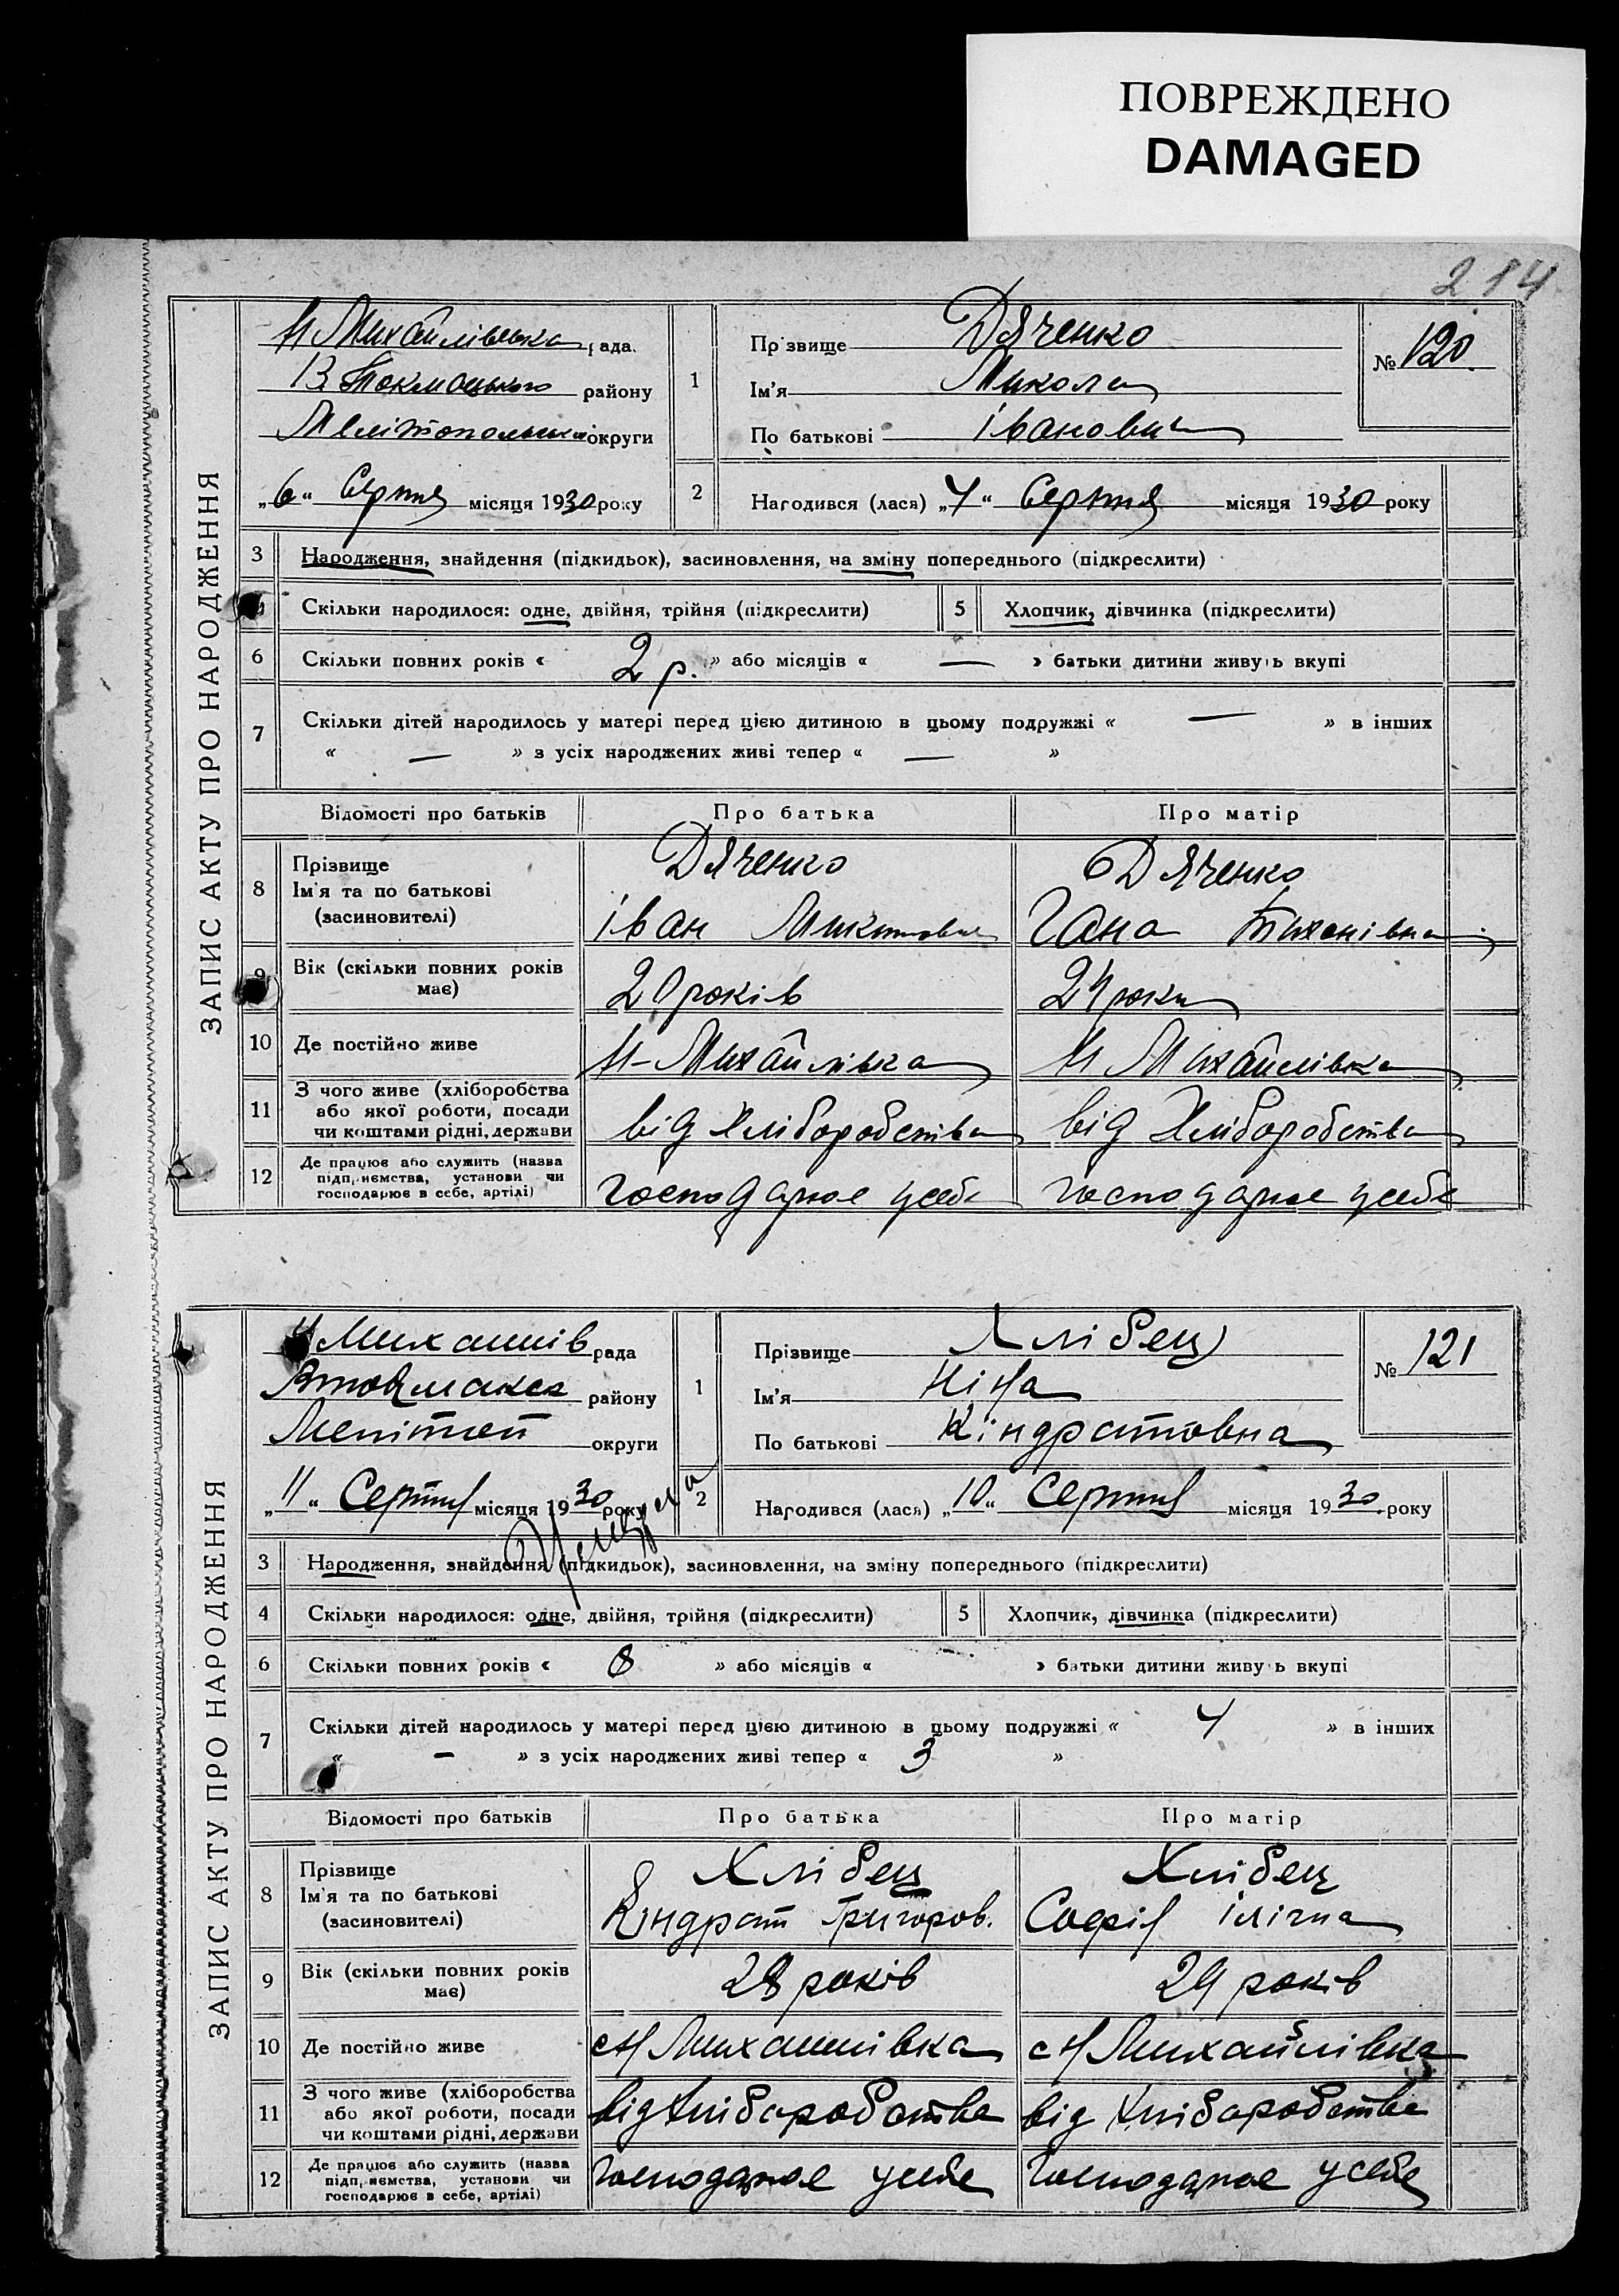 ПОВРЕЖДЕНО
DAMAGED
214
ЗАПИС АКТУ ПРО НАРОДЖЕННЯ
Н Михайлівська рада
В Токмацького району
Мелітопольської округи
„6“ Серпня місяця 1930 року
1
Прізвище Дяченко
Ім'я Микола
По батькові Іванович
№ 120
2 Народився (лася) „4“ Серпня місяця 1930 року
3 Народження, знайдення (підкидьок), засиновлення, на зміну попереднього (підкреслити)
Скільки народилося: одне, двійня, трійня (підкреслити) 5 Хлопчик, дівчинка (підкреслити)
6 Скільки повних років « 2 р. » або місяців « — » батьки дитини живуть вкупі
7 Скільки дітей народилось у матері перед цією дитиною в цьому подружжі « — » в інших
« — » з усіх народжених живі тепер « — »
Відомості про батьків Про батька Про матір
8 Прізвище Ім'я та по батькові (засиновителі)
Дяченко Дяченко
Іван Микитович Гана Тихонівна
9 Вік (скільки повних років має) 20 років 24 роки
10 Де постійно живе Н-Михайлівка Н Михайлівка
11 З чого живе (хліборобства
або якої роботи, посади
чи коштами рідні, держави
від Хліборобства від Хліборобства
12 Де працює або служить (назва
підприємства, установи чи
господарює в себе, артілі)
Господарює усебе Господарює усебе
ЗАПИС АКТУ ПРО НАРОДЖЕННЯ
Н Михайлів рада
району
Меліт округи
„11“ Серпня місяця 1930 року
1
Прізвище Хлібец
Ім'я Ніна
По батькові Кіндратовна
№ 121
2 Народився (лася) „10“ Серпня місяця 1930 року
3 Народження, знайдення (підкидьок), засиновлення, на зміну попереднього (підкреслити)
4 Скільки народилося: одне, двійня, трійня (підкреслити) 5 Хлопчик, дівчинка (підкреслити)
6 Скільки повних років « 8 » або місяців « » батьки дитини живуть вкупі
7 Скільки дітей народилось у матері перед цією дитиною в цьому подружжі « 4 » в інших
« – » з усіх народжених живі тепер « 3 »
Відомості про батьків Про батька Про матір
8 Прізвище Ім'я та по батькові (засиновителі)
Хлібец Хлібец
Кіндрат Григоров. Софія Ілічна
9 Вік (скільки повних років має) 28 років 29 років
10 Де постійно живе с Н Михайлівка с Н Михайлівка
11 З чого живе (хліборобства
або якої роботи, посади
чи коштами рідні, держави
від Хліборобства від Хліборобства
12 Де працює або служить (назва
підприємства, установи чи
господарює в себе, артілі)
Господарює усебе Господарює усебе